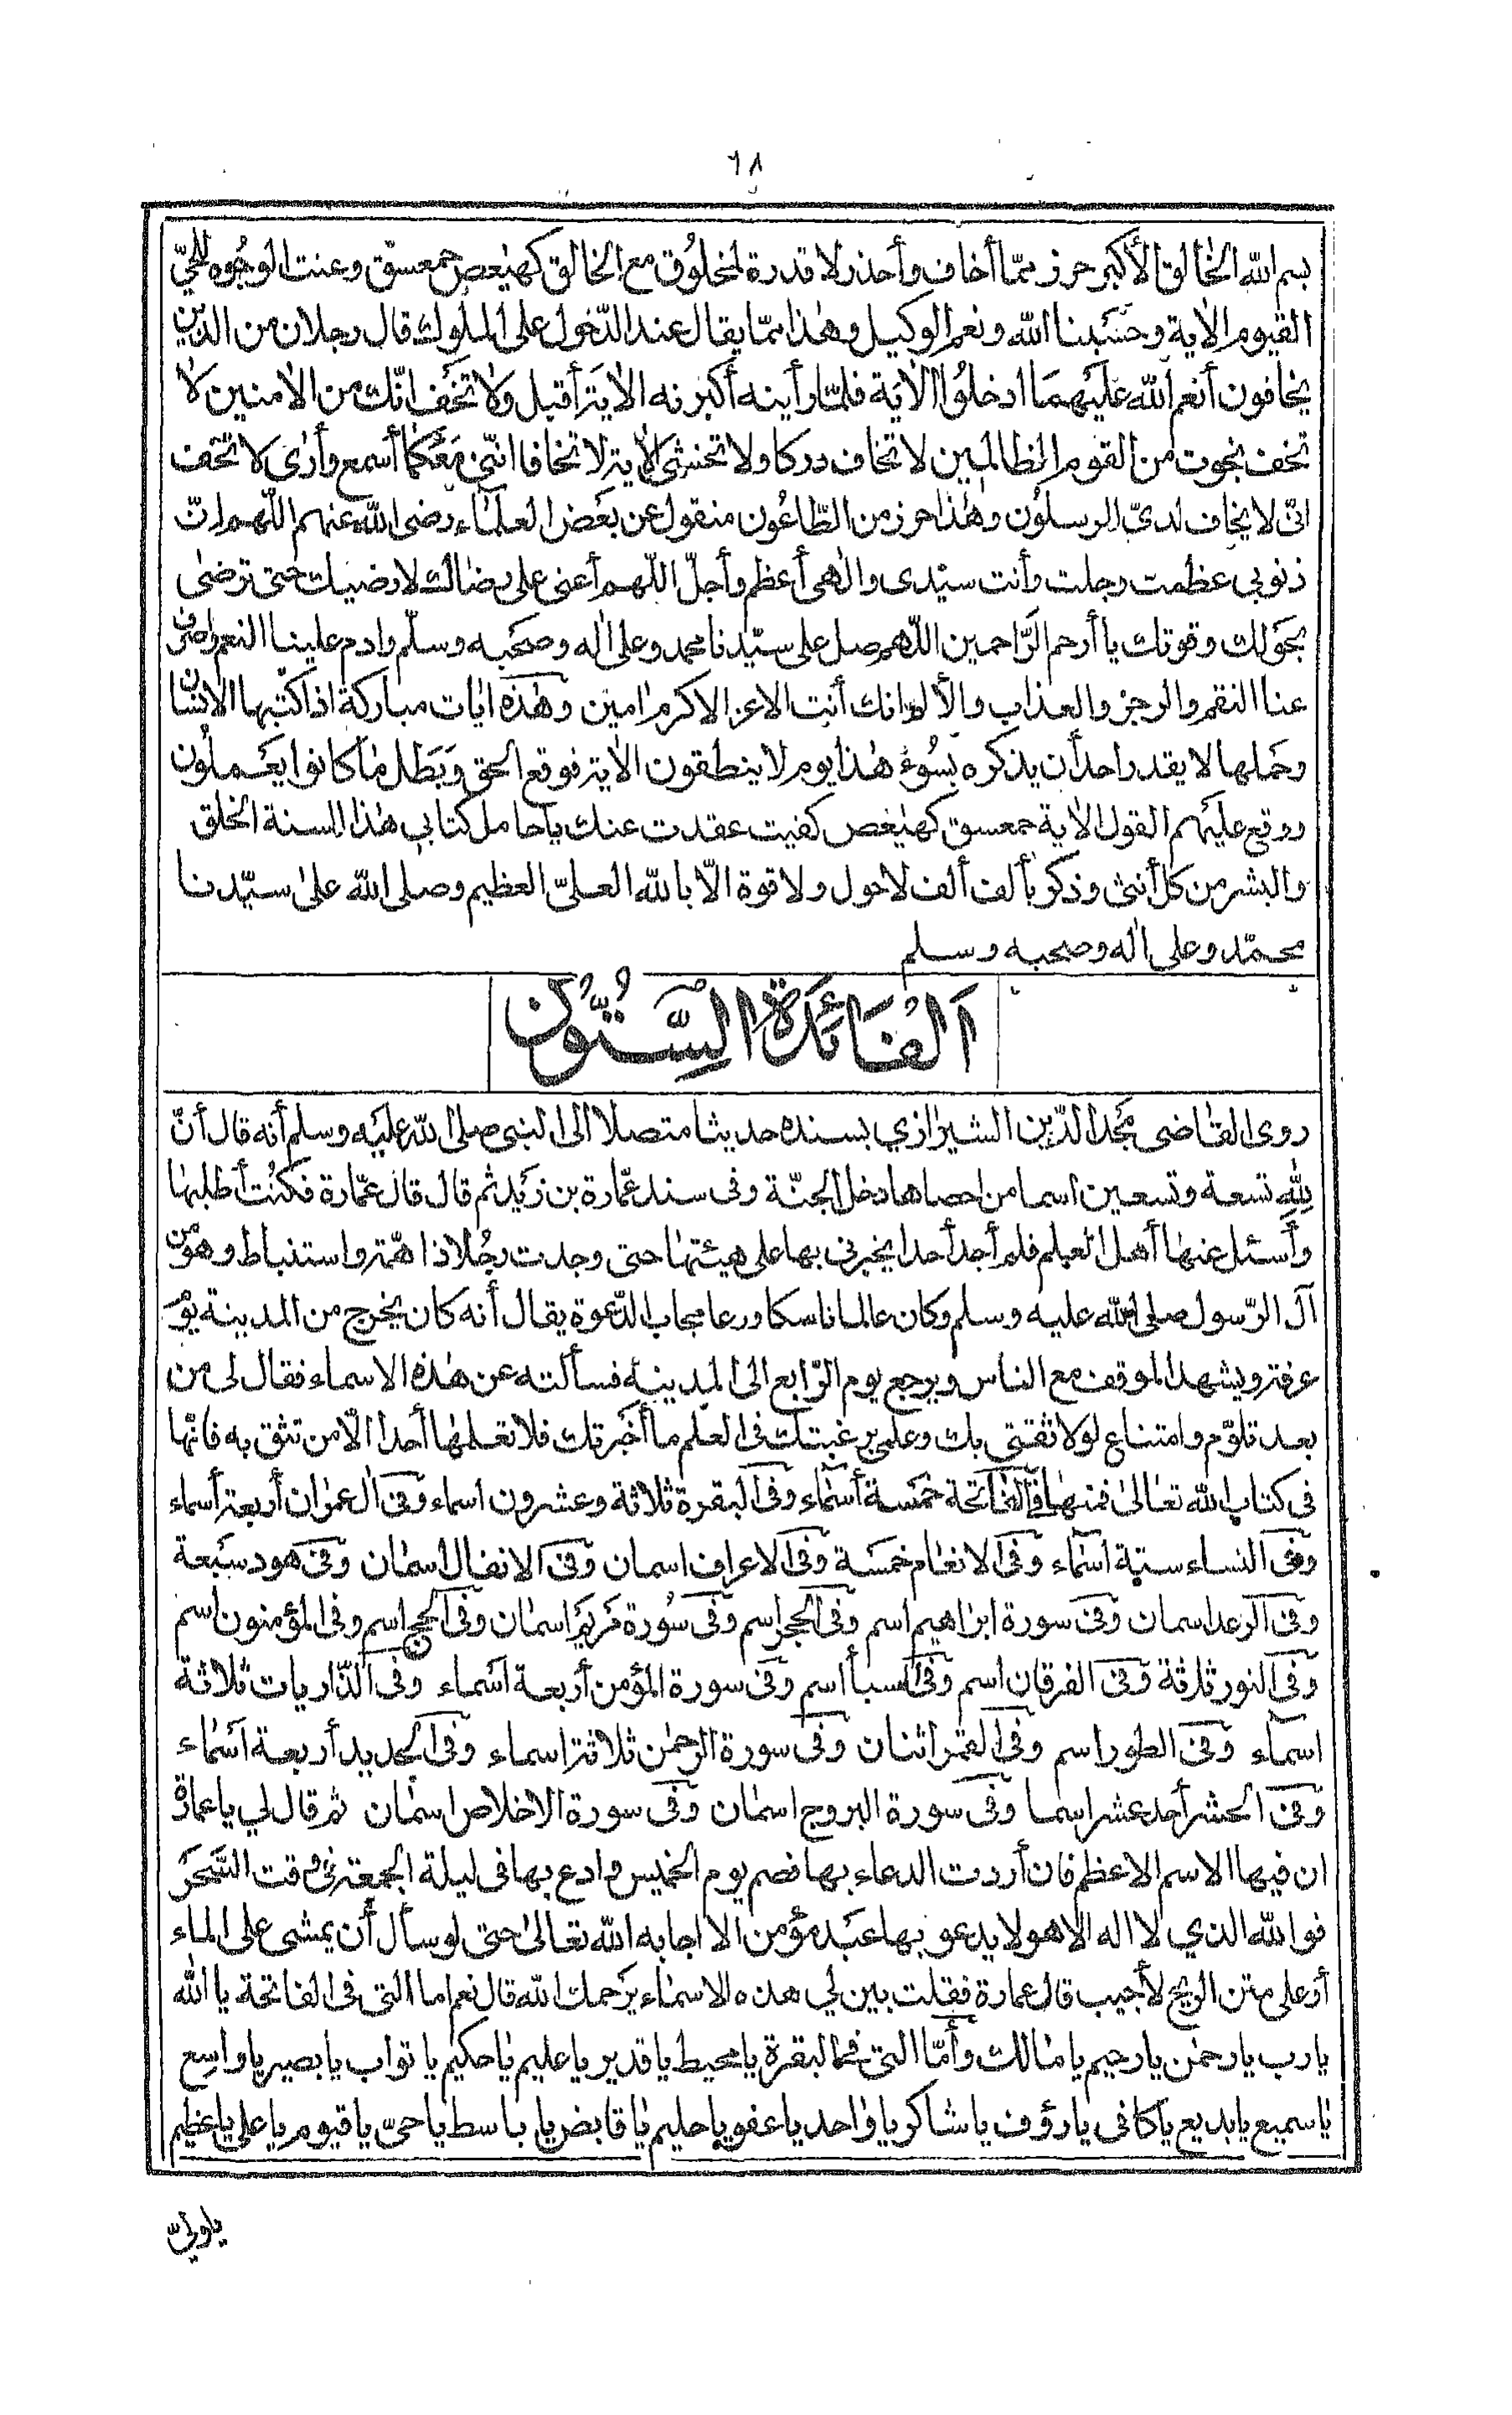 ٦٨
بسم الله الخالق الأكبر حرز مما أخاف وأحذر لا قدرة لمخلوق مع الخالق كهيعص حمعسق وعنت الوجوه للحي
القيوم الاية وحسبنا الله ونعم الوكيل وهذا مما يقال عند الدخول على الملوك قال رجلان من الذين
يخافون أنعم الله عليهما ادخلوا الاية فلما رأينه أكبرنه الاية أقبل ولا تخف انك من الامنين لا
تخف نجوت من القوم الظالمين لا تخاف دركا ولا تخشى الاية لا تخافا انني معكما أسمع وأرى لا تخف
انى لا يخاف لدي المرسلون وهذا حرز من الطاعون منقول عن بعض العلماء رضى الله عنهم اللهم ان
ذنوبي عظمت وجلت وأنت سيدى والهى أعظم وأجل اللهم أعنى على رضائك لارضيك حتى ترضى
بحولك وقوتك يا أرحم الراحمين اللهم صل على سيدنا محمد وعلى اله وصحبه وسلم وادم علينا النعم واصرف
عنا النقم والرجز والعذاب والألم انك أنت الاعز الاكرم امين وهذه ايات مباركة اذا كتبها الانسان
وحملها لا يقدر احد أن يذكره بسوء هذا يوم لا ينطقون الاية فوقع الحق وبطل ما كانوا يعملون
ووقع عليهم القول الاية حمعسق كهيعص كفيت عقدت عنك يا حامل كتابي هذا السنة الخلق
والبشر من كل أنثى وذكر بألف ألف لاحول ولا قوة الا بالله العلي العظيم وصلى الله على سيدنا
محمد وعلى اله وصحبه وسلم
اَلْفَائِدَةُ السِّتُّونَ
روى القاضى مجد الدين الشيرازي بسنده حديثا متصلا الى النبي صلى الله عليه وسلم أنه قال أن
لله تسعة وتسعين اسما من احصاها دخل الجنة وفى سند عمارة بن زيد ثم قال قال عمارة فكنت أطلبها
وأسئل عنها أهل العلم فلم أجد أحدا يخبرنى بها على هيئتها حتى وجدت رجلا ذا همة واستنباط وهو من
آل الرسول صلى الله عليه وسلم وكان عالما ناسكا ورعا مجاب الدعوة يقال أنه كان يخرج من المدينة يوم
عرفة ويشهد الموقف مع الناس ويرجع يوم الرابع الى المدينة فسألته عن هذه الاسماء فقال لى من
بعد تلوم وامتناع لولا ثقتى بك وعلمى برغبتك فى العلم ما أخبرتك فلا تعلمها أحدا الا من تثق به فانها
فى كتاب الله تعالى فمنها فى الفاتحة خمسة أسماء وفى البقرة ثلاثة وعشرون اسماء وفى ال عمران أربعة أسماء
وفى النساء ستة اسماء وفى الانعام خمسة وفى الاعراف اسمان وفى الانفال اسمان وفى هود سبعة
وفى الرعد اسمان وفى سورة ابراهيم اسم وفى الحجر اسم وفى سورة مريم اسمان وفى الحج اسم وفى المؤمنون اسم
وفى النور ثلاثة وفى الفرقان اسم وفى السبأ اسم وفى سورة المؤمن أربعة اسماء وفى الذاريات ثلاثة
اسماء وفى الطور اسم وفى القمر اثنان وفى سورة الرحمن ثلاثة اسماء وفى الحديد أربعة اسماء
وفى الحشر أحد عشر اسما وفى سورة البروج اسمان وفى سورة الاخلاص اسمان ثم قال لي يا عمارة
ان فيها الاسم الاعظم فان أردت الدعاء بها فصم يوم الخميس وادع بها فى ليلة الجمعة فى وقت السحر
فوالله الذي لا اله الا هو لا يدعو بها عبد مؤمن الا اجابه الله تعالى حتى لو سأل أن يمشى على الماء
أو على متن الريح لأجيب قال عمارة فقلت بين لي هذه الاسماء يرحمك الله قال نعم اما التى فى الفاتحة يا الله
يارب يارحمن يارحيم يا مالك وأما التى فى البقرة يا محيط يا قدير يا عليم يا حكيم يا تواب يا بصير يا واسع
يا سميع يا بديع يا كافى يا رؤف يا شاكر يا واحد يا عفو يا حليم يا قابض يا باسط يا حي يا قيوم يا على يا عظيم
يا ولي